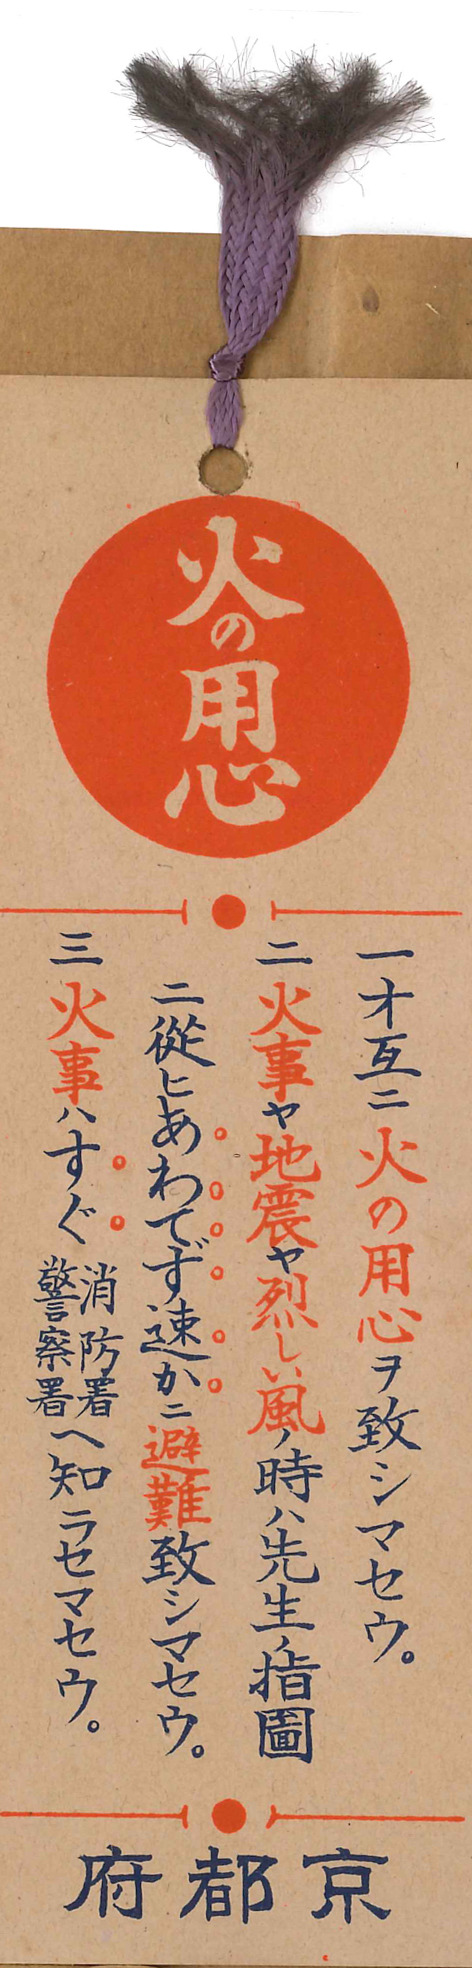 火の用心
一 オ互ニ火の用心ヲ致シマセウ。
二 火事ヤ地震ヤ烈しい風ノ時ハ先生ノ指圖
ニ從ヒあわてず速かニ避難致シマセウ。
三 火事ハすぐ
消防署
警察署
ヘ知ラセマセウ。
京都府